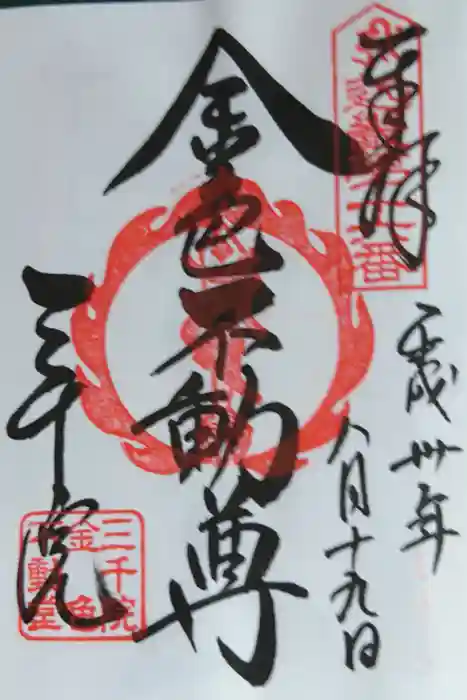 奉拝
平成卅年
八月十九日
金色不動尊
三千院
三千院
金色
不動堂